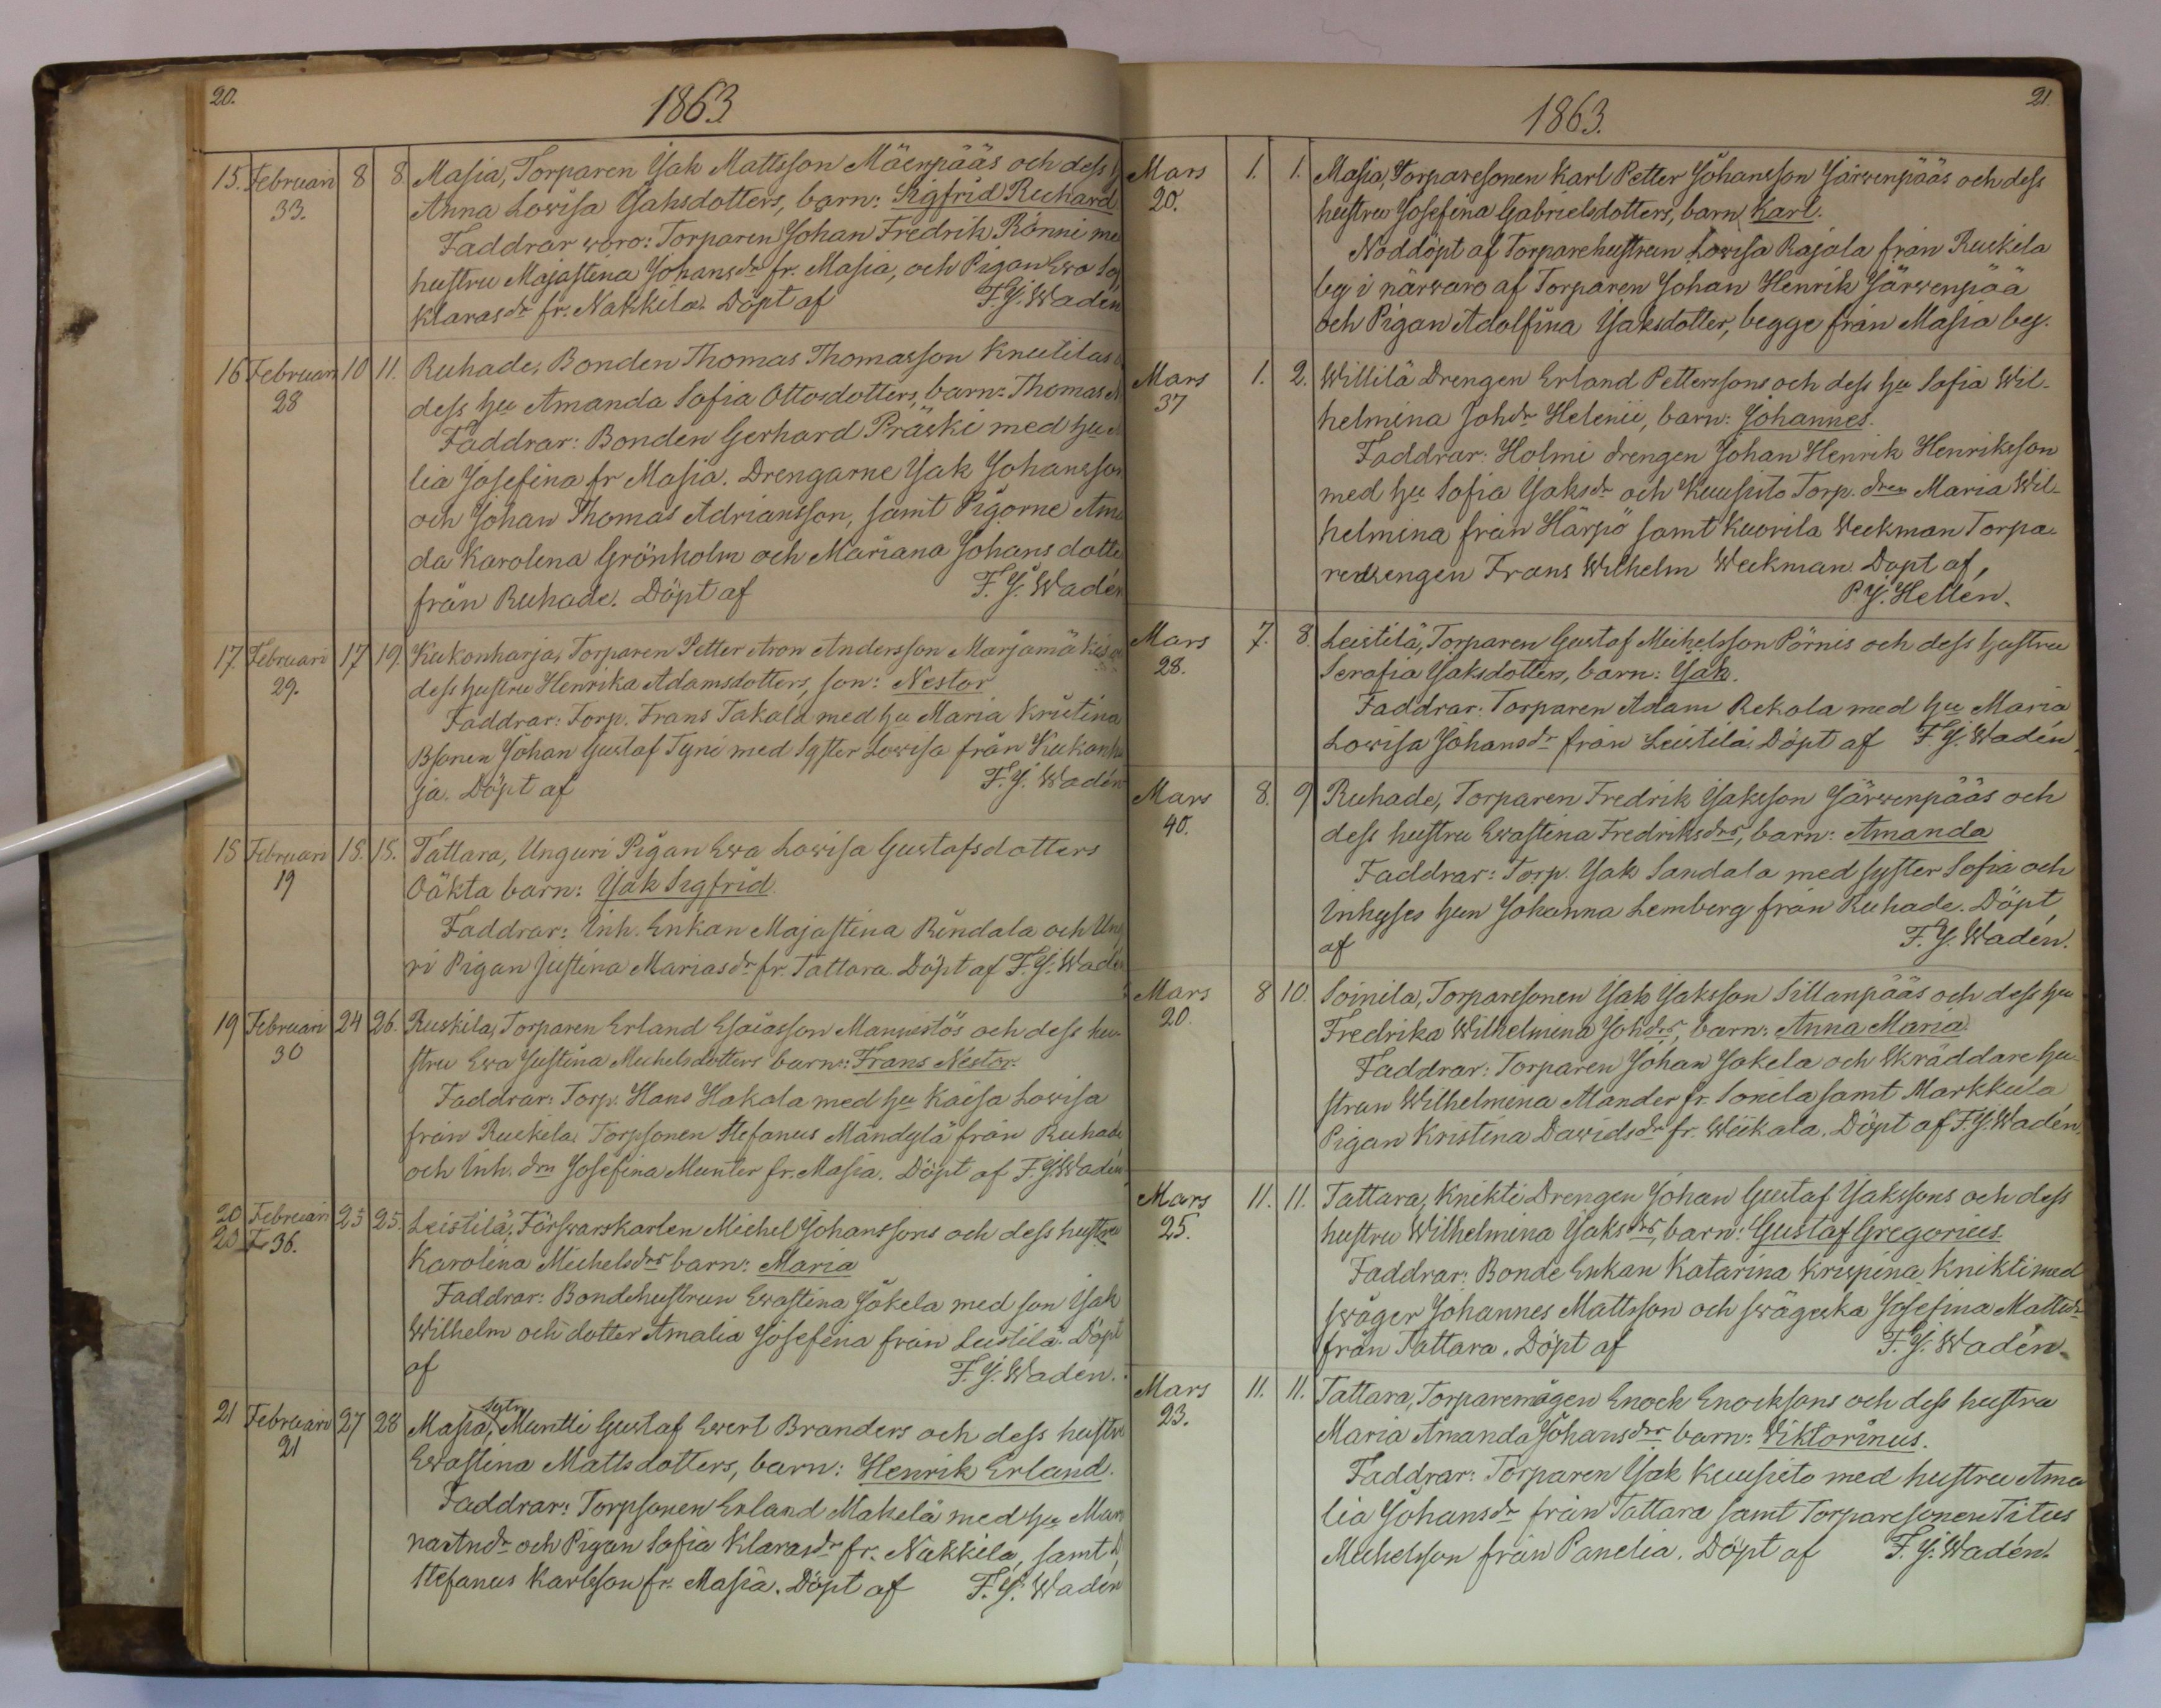 20.
1863
15. Februari 8 8. Masia, Torparen Isak Mattsson Mäenpääs och dess
33. Anna Lovisa Isaksdotters, barn: Sigfrid Richard
Faddrar woro: Torparen Johan Fredrik Rönni me
hustru Majastina Johansdr fr. Masia, och Pigan Ewa So
Klarasdr fr. Nakkila. Döpt af F. J. Wadén
16 Februari 10 11. Ruhade, Bonden Thomas Thomasson Knutilas
28 dess hu Amanda Sofia Ottosdotters, barn: Thomas
Faddrar: Bonden Gerhard Präski med hu
lia Josefina fr Masia. Drengarne Isak Johansson
och Johan Thomas Adriansson, samt Pigorne Ama
da Karolina Grönholm och Mariana Johansdotte
från Ruhade. Döpt af F. J. Wadén
17 Februari 17 19. Kukonharja, Torparen Petter Aron Andersson Marjamäkis
29. dess hustru Henrika Adamsdotters, son: Nestor
Faddrar: Torp. Frans Takala med hu Maria Kristina
Bsonen Johan Gustaf Tyni med Syster Lovisa från Kukonha
ja. Döpt af F. J. Wadén
18 Februari 15. 15. Tattara, Unguri Pigan Ewa Lovisa Gustafsdotters
19 Oäkta barn: Isak Sigfrid
Faddrar: Inh. Enkan Majastina Rindala och Ung
ri Pigan Justina Mariasdr fr. Tattara. Döpt af F. J. Wadén
19 Februari 24 26. Ruskila, Torparen Erland Esaiasson Mannistös och dess hu-
30 stru Ewa Justina Michelsdotters barn: Frans Nestor.
Faddrar: Torp. Hans Hakala med hu Kaisa Lovisa
från Ruskila, Torpsonen Stefanus Mändylä från Ruhade
och Inh. drn Josefina Munter fr. Masia. Döpt af F. J. Wadén
20 Februari 25 25. Leistilä, Förswarskarlen Michel Johanssons och dess hustru
20 Fr 36. Karolina Michelsdrs barn: Maria
Faddrar: Bondehustrun Ewastina Jokela med son Isak
Wilhelm och dotter Amalia Josefina från Leistilä. Döpt
af F. J. Wadén.
21 Februari 27 28 Masia, Sytn. Muntti Gustaf Ewert Branders och dess hustru
21 Ewastina Mattsdotters, barn: Henrik Erland.
Faddrar: Torpsonen Erland Makelä med hu Mari
na Andr och Pigan Sofia Klarasdr fr. Nakkila, samt
Stefanus Karlsson fr. Masia. Döpt af F. J. Wadén
21.
1863.
Mars 1. 1. Masia, Torparesonen Karl Petter Johansson Järwenpääs och dess
20. hustru Josefina Gabrielsdotters, barn Karl.
Noddöpt af Torparehustrun Lovisa Rajala från Ruskila
by i närwaro af Torparen Johan Henrik Järwenpää
och Pigan Adolfina Isaksdotter, begge från Masia by.
Mars 1. 2. Willilä Drengen Erland Petterssons och dess hu Sofia Wil-
37 helmina Johdr Helenii, barn: Johannes.
Faddrar: Holmi drengen Johan Henrik Henriksson
med hu Sofia Isaksdr och Kuusisto Torp. drn Maria Wil-
helmina från Härpö samt Kuorila Weckman Torpa-
redrengen Frans Wilhelm Weckman. Döpt af,
P. J. Hellén.
Mars 7. 8. Leistilä, Torparen Gustaf Michelsson Pörnis och dess hustru
28. Serafia Isaksdotters, barn: Isak.
Faddrar: Torparen Adam Rekola med hu Maria
Lovisa Johansdr från Leistilä. Döpt af F. J. Wadén
Mars 8. 9 Ruhade, Torparen Fredrik Isaksson Järwenpääs och
40. dess hustru Ewastina Fredriksdrs, barn: Amanda
Faddrar: Torp. Isak Sandala med syster Sofia och
Inhyses hun Johanna Lemberg från Ruhade. Döpt
af F. J. Wadén.
Mars 8 10. Soinila, Torparesonen Isak Isaksson Sillanpääs och dess hu
20. Fredrika Wilhelmina Johdrs, barn: Anna Maria.
Faddrar: Torparen Johan Jokela och Skräddarehu-
strun Wilhelmina Mander fr. Soinila samt Markkula
Pigan Kristina Dawidsdr fr. Wiikala. Döpt af F. J. Wadén.
Mars 11. 11. Tattara, Knikti Drengen Johan Gustaf Isakssons och dess
25. hustru Wilhelmina Isaksdrs, barn: Gustaf Gregorius.
Faddrar: Bonde Enkan Katarina Krispina Knikti med
swåger Johannes Mattsson och swägeska Josefina Mattsdr
från Tattara. Döpt af F. J. Wadén.
Mars 11. 11. Tattara, Torparemågen Enock Enocksons och dess hustru
23. Maria Amanda Johansdrs barn: Wiktorinus.
Faddrar: Torparen Isak Kuusisto med hustru Ama
lia Johansdr från Tattara samt Torparesonen Titus
Michelsson från Panelia. Döpt af F. J. Wadén.